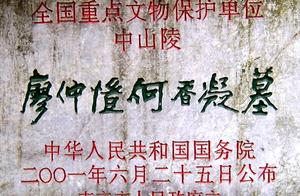 全国重点文物保护单位
中山陵
廖仲恺何香凝墓
中华人民共和国国务院
二〇〇一年六月二十五日公布
南京市人民政府立